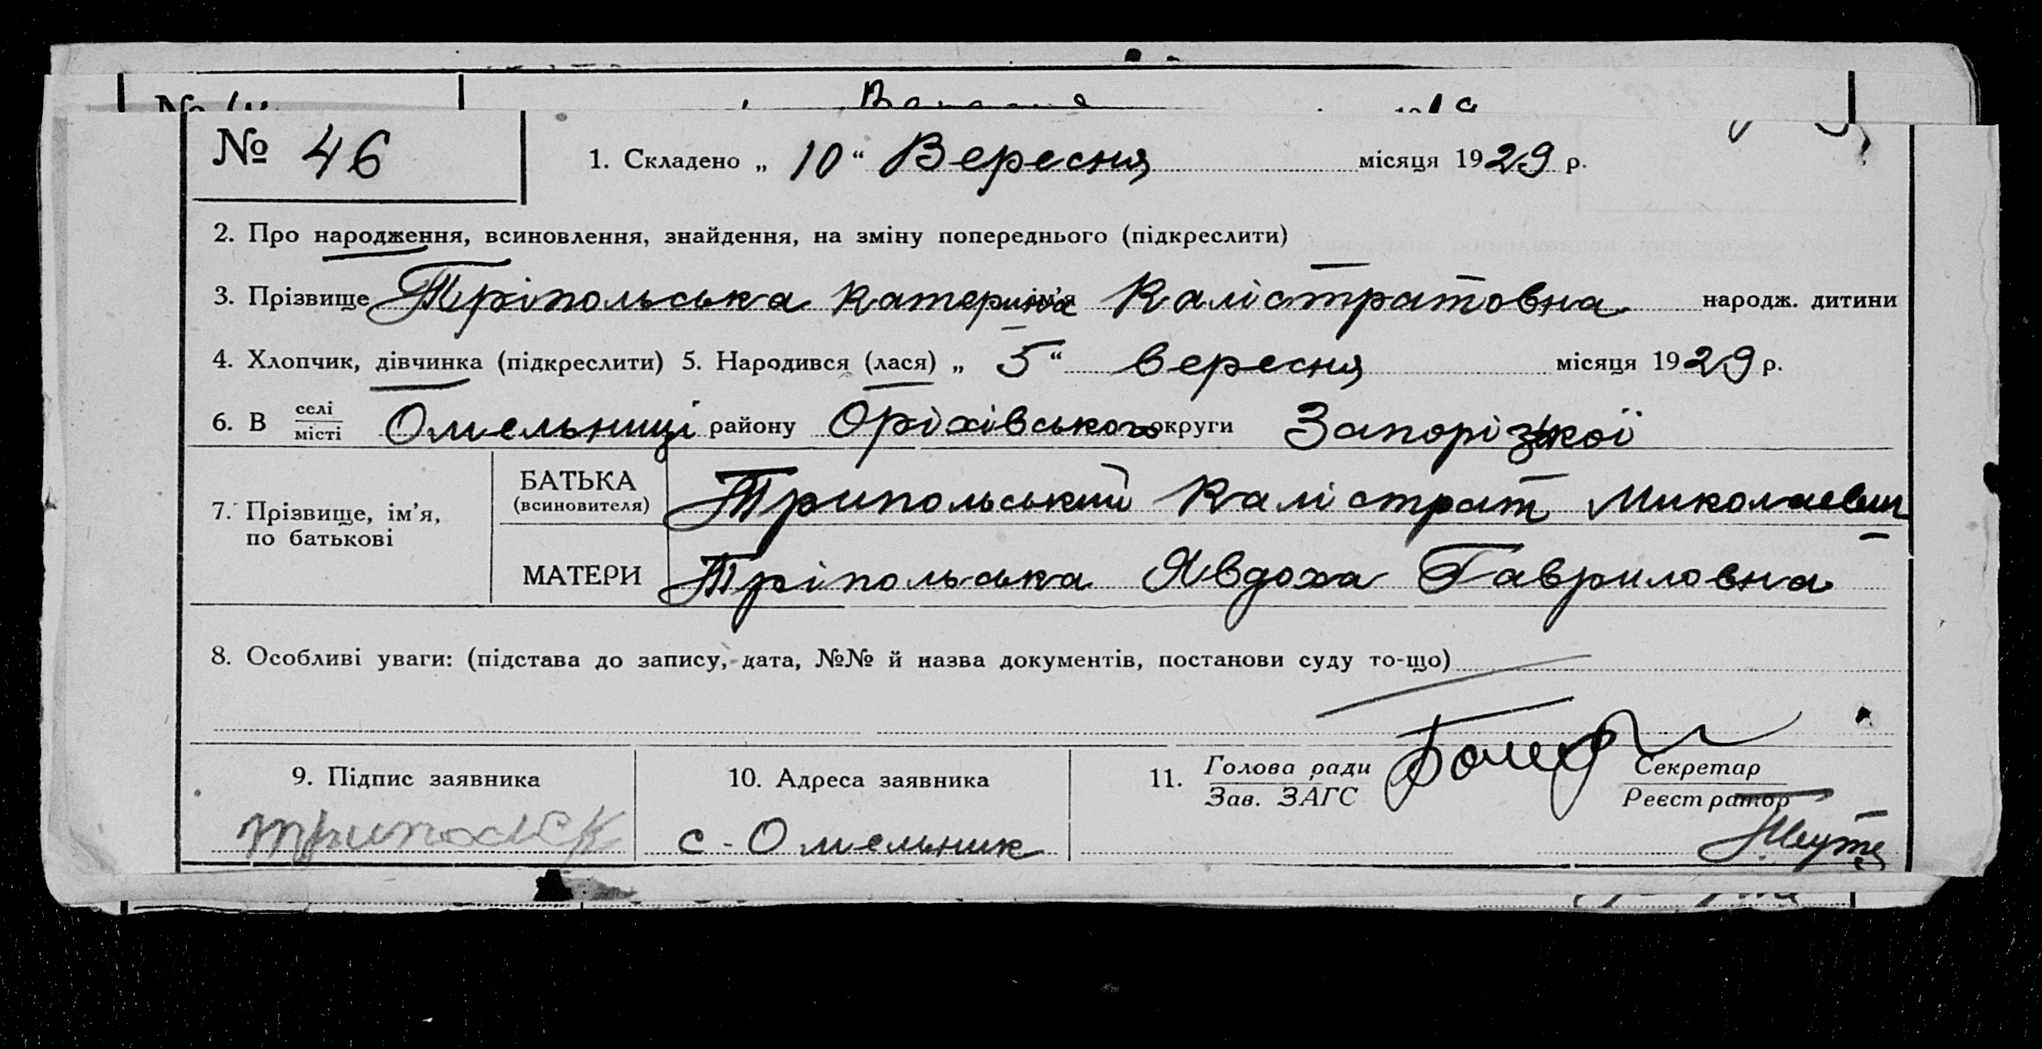 № 46
1. Складено „ 10 “ Вересня місяця 1929 р.
2. Про народження, всиновлення, знайдення, на зміну попереднього (підкреслити)
3. Прізвище Тріпольська Катерина ім'я Калістратовна народж. дитини
4. Хлопчик, дівчинка (підкреслити) 5. Народився (лася) „ 5 “ вересня місяця 1929 р.
6. В селі місті Омельниці району Оріхівського округи Запорізької
7. Прізвище, ім'я, по батькові
БАТЬКА (всиновителя) Трипольський Калістрат Миколаевич
МАТЕРИ Тріпольська Явдоха Гавриловна
8. Особливі уваги: (підстава до запису, дата, №№ й назва документів, постанови суду то-що)
9. Підпис заявника
10. Адреса заявника
11. Голова ради Зав. ЗАГС
Секретар Реєстратор
с-Омельник